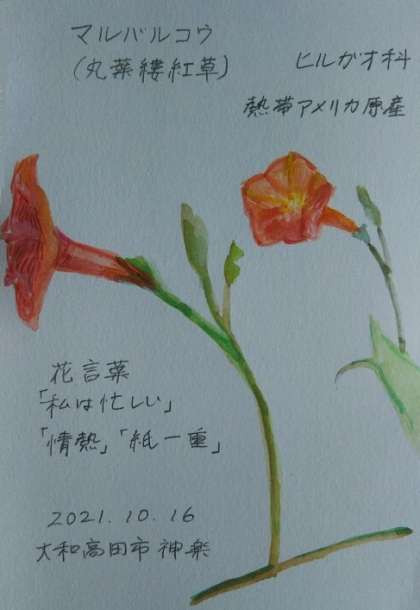 マルバルコウ
(丸葉縷紅草)
ヒルガオ科
熱帯アメリカ原産
花言葉
「私は忙しい」
「情熱」「紙一重」
2021.10.16
大和高田市神楽